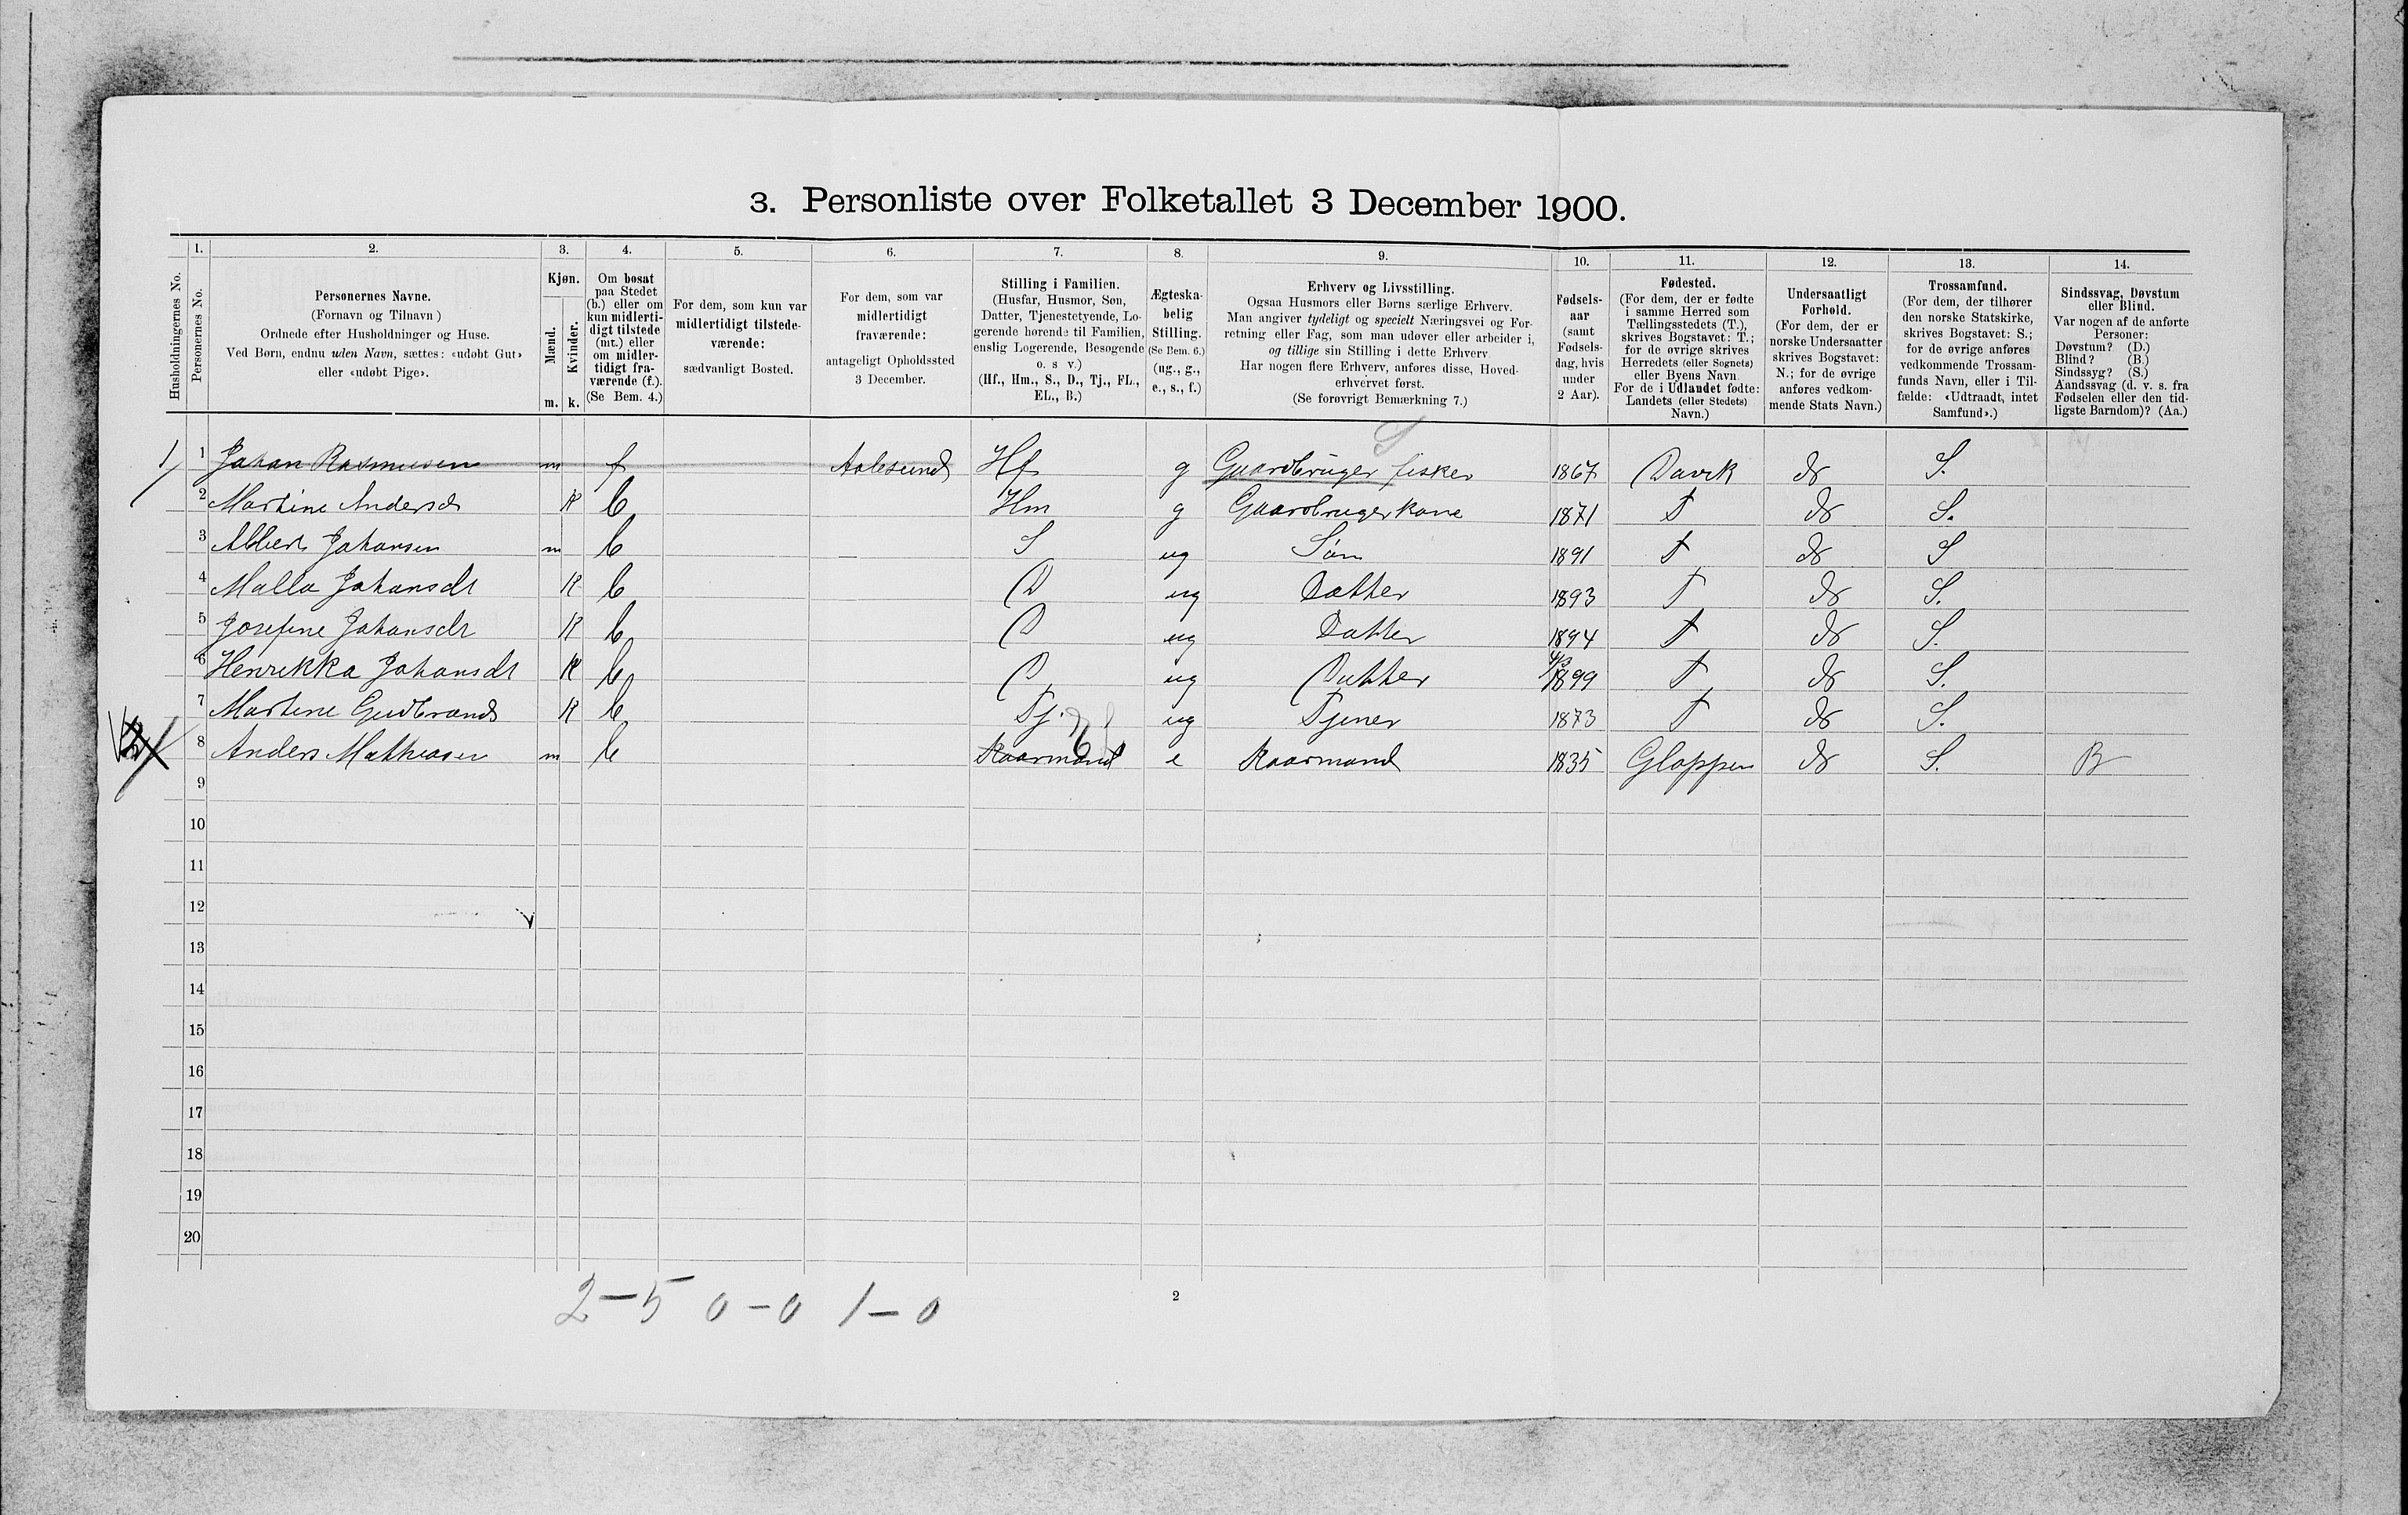 3. Personliste over Folketallet 3 December 1900.
Husholdningernes No.
1.
Personernes No.
2.
Personernes Navne.
(Fornavn og Tilnavn)
Ordnede efter Husholdninger og Huse.
Ved Børn, endnu uden Navn, sættes: «udøbt Gut»
eller «udøbt Pige».
3.
Kjøn.
Mænd.
Kvinder.
m. k.
4.
Om bosat
paa Stedet
(b.) eller om
kun midlerti-
digt tilstede
(mt.) eller
om midler-
tidigt fra-
værende (f.).
(Se Bem. 4.)
5.
For dem, som kun var
midlertidigt tilstede-
værende:
sædvanligt Bosted.
6.
For dem, som var
midlertidigt
fraværende:
antageligt Opholdssted
3 December.
7.
Stilling i Familien.
(Husfar, Husmor, Søn,
Datter, Tjenestetyende, Lo-
gerende hørende til Familien,
enslig Logerende, Besøgende
o. s v.)
(Hf., Hm., S., D., Tj., FL.,
EL., B.)
8.
Ægteska-
belig
Stilling.
(Se Bem. 6.)
(ug., g.,
e., s., f.)
9.
Erhverv og Livsstilling.
Ogsaa Husmors eller Børns særlige Erhverv.
Man angiver tydeligt og specielt Næringsvei og For-
retning eller Fag, som man udøver eller arbeider i,
og tillige sin Stilling i dette Erhverv
Har nogen flere Erhverv, anføres disse, Hoved-
erhvervet først.
(Se forøvrigt Bemærkning 7.)
10.
Fødsels-
aar
(samt
Fødsels-
dag, hvis
under
2 Aar).
11.
Fødested.
(For dem, der er fødte
i samme Herred som
Tællingsstedets (T.),
skrives Bogstavet: T.;
for de øvrige skrives
Herredets (eller Sognets)
eller Byens Navn.
For de i Udlandet fødte:
Landets (eller Stedets)
Navn.)
12.
Undersaatligt
Forhold.
(For dem, der er
norske Undersaatter
skrives Bogstavet:
N.; for de øvrige
anføres vedkom-
mende Stats Navn.)
13.
Trossamfund.
(For dem, der tilhører
den norske Statskirke,
skrives Bogstavet: S.;
for de øvrige anføres
vedkommende Trossam-
funds Navn, eller i Til-
fælde: «Udtraadt, intet
Samfund».)
14.
Sindssvag, Døvstum
eller Blind.
Var nogen af de anførte
Personer:
Døvstum? (D.)
Blind? (B.)
Sindssyg? (S.)
Aandssvag (d. v. s. fra
Fødselen eller den tid-
ligste Barndom)? (Aa.)
S
1 1 Johan Rasmussen m f Aalesund Hf g Gaardbruger fisker 1867 Davik N S.
2 Martine Andersd K b Hm g Gaardbruger kone 1871 T N S.
3 Albert Johansen m b S ug Søn 1891 T N S
4 Malla Johansdt K b D ug Datter 1893 T N S.
5 Josefine Johansdt K b D ug Datter 1894 T N S.
6 Henrikka Johansdt K b D ug Datter 1899 T N S.
7 Martine Gudbrands K b Tj. ug Tjener 1873 T N S.
8 Anders Mathiasen m b Kaarmand e Kaarmand 1835 Gloppen N S. B
9
10
11
12
13
14
15
16
17
18
19
20
2-5 0-0 1-0
2